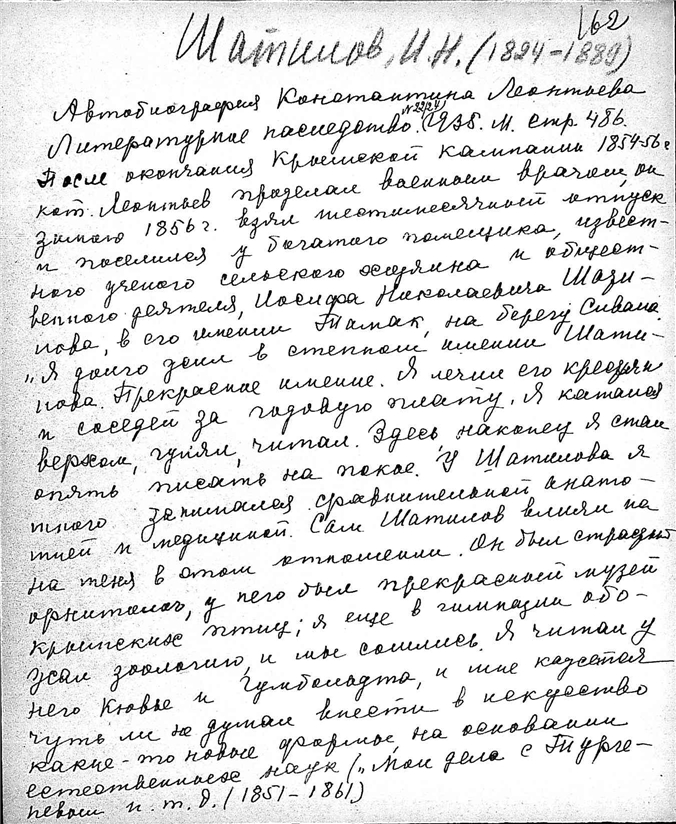 162
Шатилов, И.Н. (1824-1889)
Автобиография Константина Леонтьева
Литературное наследство. № 22/24 1935. М. стр. 486.
После окончания Крымской кампании 1854-56 г
кот. Леонтьев проделал военным врачом, он
зимою 1856 г. взял шестимесячный отпуск
и поселился у богатого помещика, извест-
ного ученого сельского хозяина и общест-
венного деятеля, Иосифа Николаевича Шати-
лова, в его имении Тамак, на берегу Сиваша.
"Я долго жил в степном имении Шати-
лова. Прекрасное имение. Я лечил его крестьян
и соседей за годовую плату. Я катался
верхом, гулял, читал. Здесь наконец я стал
опять писать на покое. У Шатилова я
много занимался сравнительной анато-
мией и медициной. Сам Шатилов влиял на
на меня в этом отношении. Он был страстный
орнитолог, у него был прекрасный музей
крымских птиц; я еще в гимназии обо-
жал зоологию, и мы сошлись. Я читал у
него Кювье и Гумбольдта, и мне кажется
чуть ли не думал внести в искусство
какие-то новые формы, на основании
естественных наук ("Мои дела с Турге-
невым и.т.д. (1851-1861)